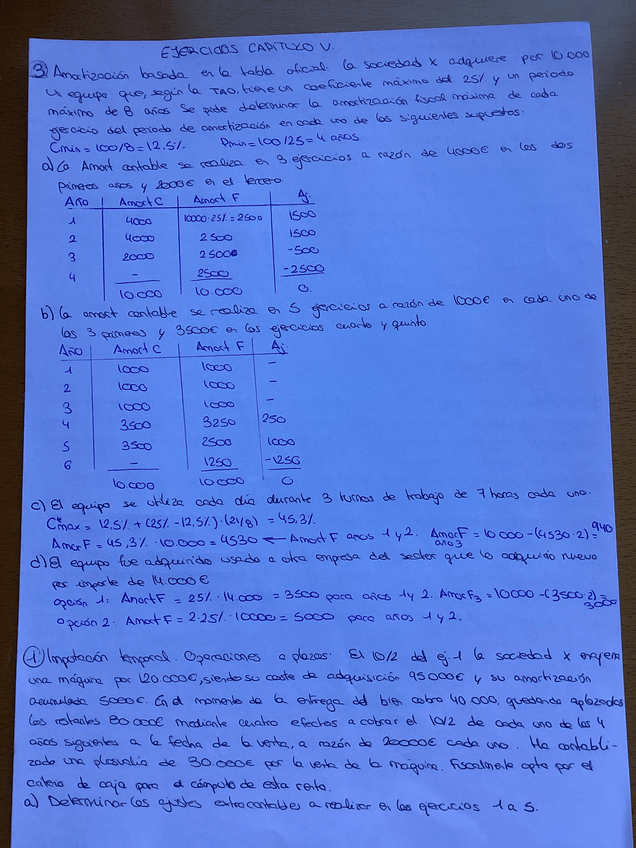 EJERCICIOS CAPÍTULO V.
③ Amortización basada en la tabla oficial: la sociedad X adquiere por 10.000
un equipo que, según la TAO, tiene un coeficiente máximo del 25% y un periodo
máximo de 8 años. Se pide determinar la amortización fiscal máxima de cada
ejercicio del periodo de amortización en cada uno de los siguientes supuestos:
Cmin = 100/8 = 12.5% Pmin = 100/25 = 4 años
a) La Amort contable se realiza en 3 ejercicios a razón de 4000€ en los dos
primeros años y 2000€ en el tercero
AÑO Amort C Amort F Aj.
1 4000 10000·25% = 2500 1500
2 4000 2500 1500
3 2000 2500 -500
4 - 2500 -2500
10.000 10.000 0.
b) La amort contable se realiza en 5 ejercicios a razón de 1000€ en cada uno de
los 3 primeros y 3500€ en los ejercicios cuarto y quinto.
AÑO Amort C Amort F Aj.
1 1000 1000 -
2 1000 1000 -
3 1000 1000 -
4 3500 3250 250
5 3500 2500 1000
6 - 1250 -1250
10.000 10.000 0
c) El equipo se utiliza cada día durante 3 turnos de trabajo de 7 horas cada uno.
Cmax = 12,5% + (25% - 12,5%)·(21/8) = 45,3%
Amor F = 45,3% · 10.000 = 4530 ← Amort F años 1 y 2. Amor F año 3 = 10.000 - (4530·2) = 940
d) El equipo fue adquirido usado a otra empresa del sector que lo adquirió nuevo
por importe de 14.000€
opción 1: Amort F = 25% · 14.000 = 3500 para años 1 y 2. Amor F3 = 10000 - (3500·2) = 3000
opción 2: Amort F = 2·25% · 10000 = 5000 para años 1 y 2.
① Imputación temporal. Operaciones a plazos: El 10/2 del ej. 1 la sociedad X
una máquina por 120.000€, siendo su coste de adquisición 95000€ y su amortización
acumulada 5000€. En el momento de la entrega del bien cobra 40.000, quedando aplazados
los restantes 80.000€ mediante cuatro efectos a cobrar el 10/2 de cada uno de los 4
años siguientes a la fecha de la venta, a razón de 20000€ cada uno. Ha contabili-
zado una plusvalía de 30.000€ por la venta de la máquina. Fiscalmente opta por el
criterio de caja para el cómputo de esta renta.
a) Determinar los ajustes extracontables a realizar en los ejercicios 1 a 5.